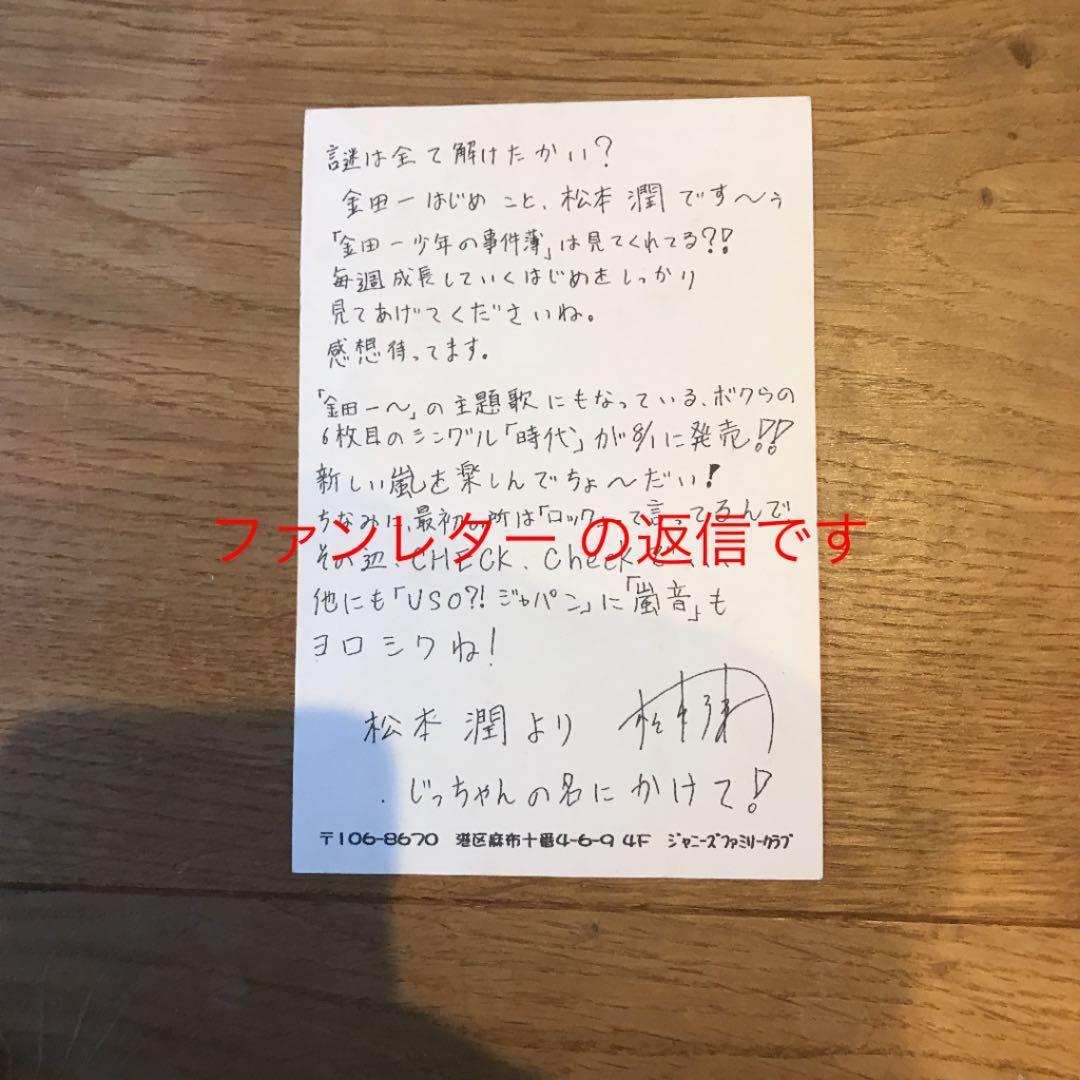 謎は全て解けたかい?
金田一はじめこと、松本潤です〜ぅ
「金田一少年の事件簿」は見てくれてる?!
毎週成長していくはじめをしっかり
見てあげてくださいね。
感想待ってます。
「金田一〜」の主題歌にもなっている、ボクらの
6枚目のシングル「時代」が8/1に発売!!
新しい嵐を楽しんでちょ〜だい!
ちなみに、最初 所は「ロック」て言ってるんで
ファンレターの返信です
その辺、CHECK、Check
他にも「USO?!ジャパン」に「嵐音」も
ヨロシクね!
松本潤より 松本潤
じっちゃんの名にかけて!
〒106-8670 港区麻布十番4-6-9 4F ジャニーズファミリークラブ